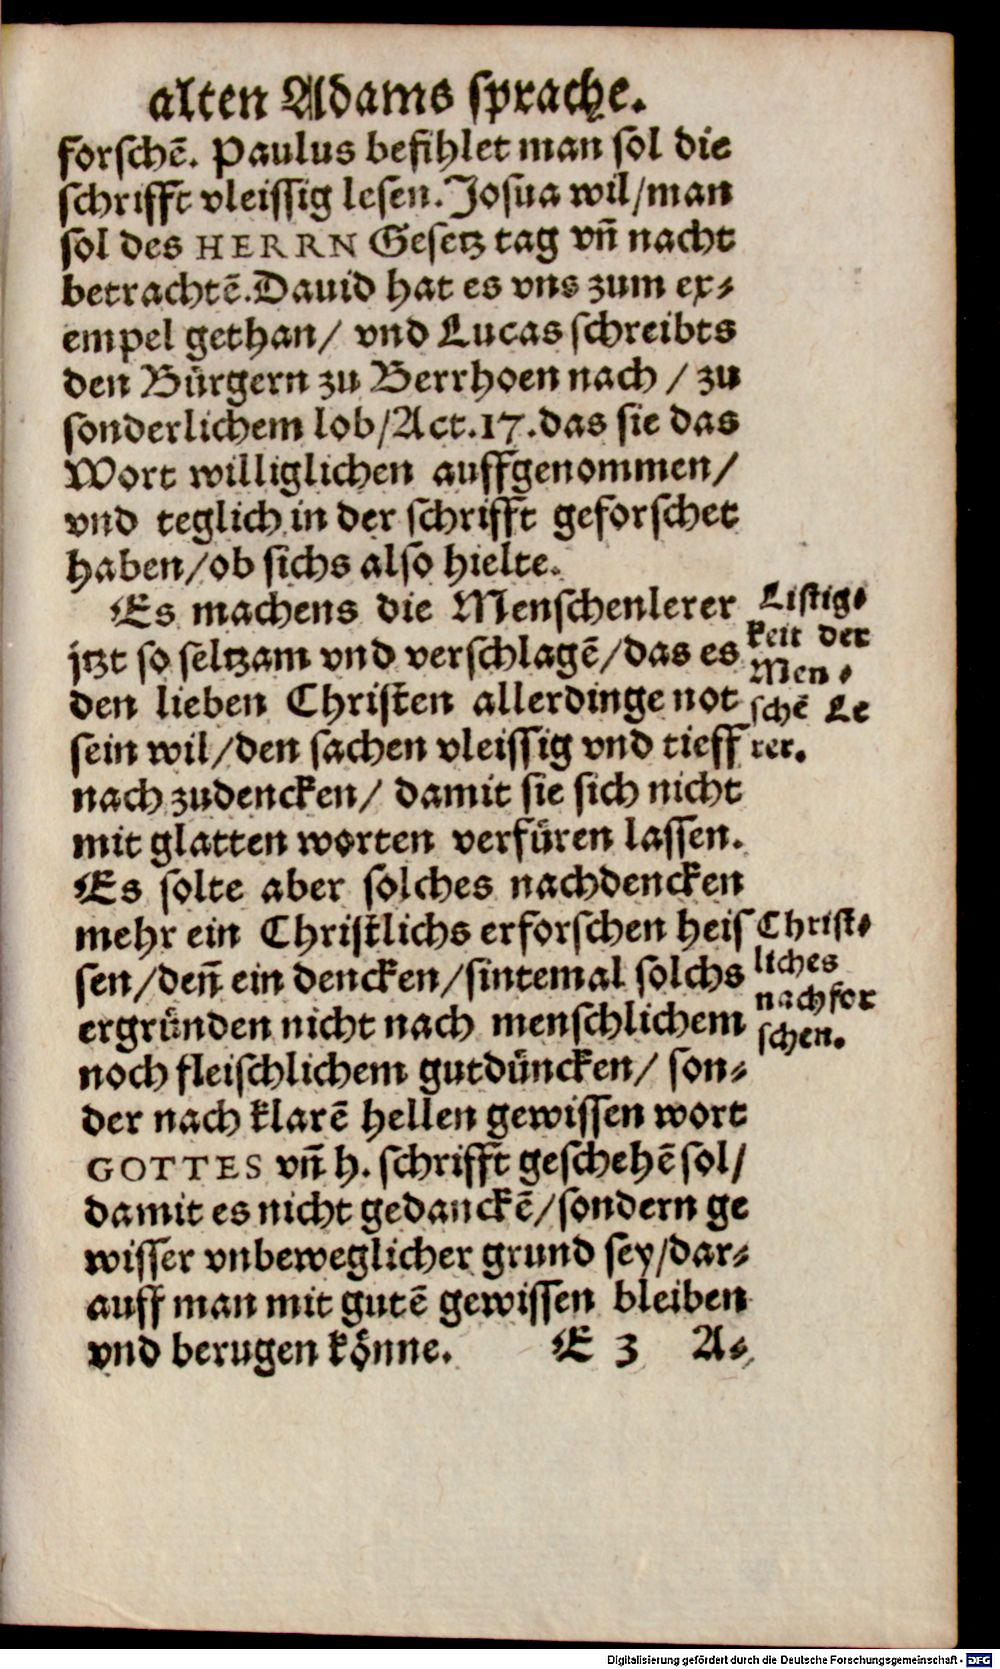 alten Adams sprache.
forschē. Paulus befihlet man sol die
schrifft vleissig lesen. Josua wil/man
sol des HERRN Gesetz tag vn̄ nacht
betrachtē. Dauid hat es vns zum ex-
empel gethan/ vnd Lucas schreibts
den Bürgern zu Berrhoen nach / zu
sonderlichem lob/Act.17.das sie das
Wort williglichen auffgenommen/
vnd teglich in der schrifft geforschet
haben/ob sichs also hielte.
Es machens die Menschenlerer
jtzt so seltzam vnd verschlagē/das es
den lieben Christen allerdinge not
sein wil/den sachen vleissig vnd tieff
nach zudencken/ damit sie sich nicht
mit glatten worten verfüren lassen.
Es solte aber solches nachdencken
mehr ein Christlichs erforschen heis
sen/den̄ ein dencken/sintemal solchs
ergründen nicht nach menschlichem
noch fleischlichem gutdüncken/ son-
der nach klarē hellen gewissen wort
GOTTES vn̄ h. schrifft geschehē sol/
damit es nicht gedanckē/sondern ge
wisser vnbeweglicher grund sey/dar-
auff man mit gutē gewissen bleiben
vnd berugen könne.
E 3 A-
Listig-
keit der
Men-
schē Le
rer.
Christ-
liches
nachfor
schen.
Digitalisierung gefördert durch die Deutsche Forschungsgemeinschaft - DFG